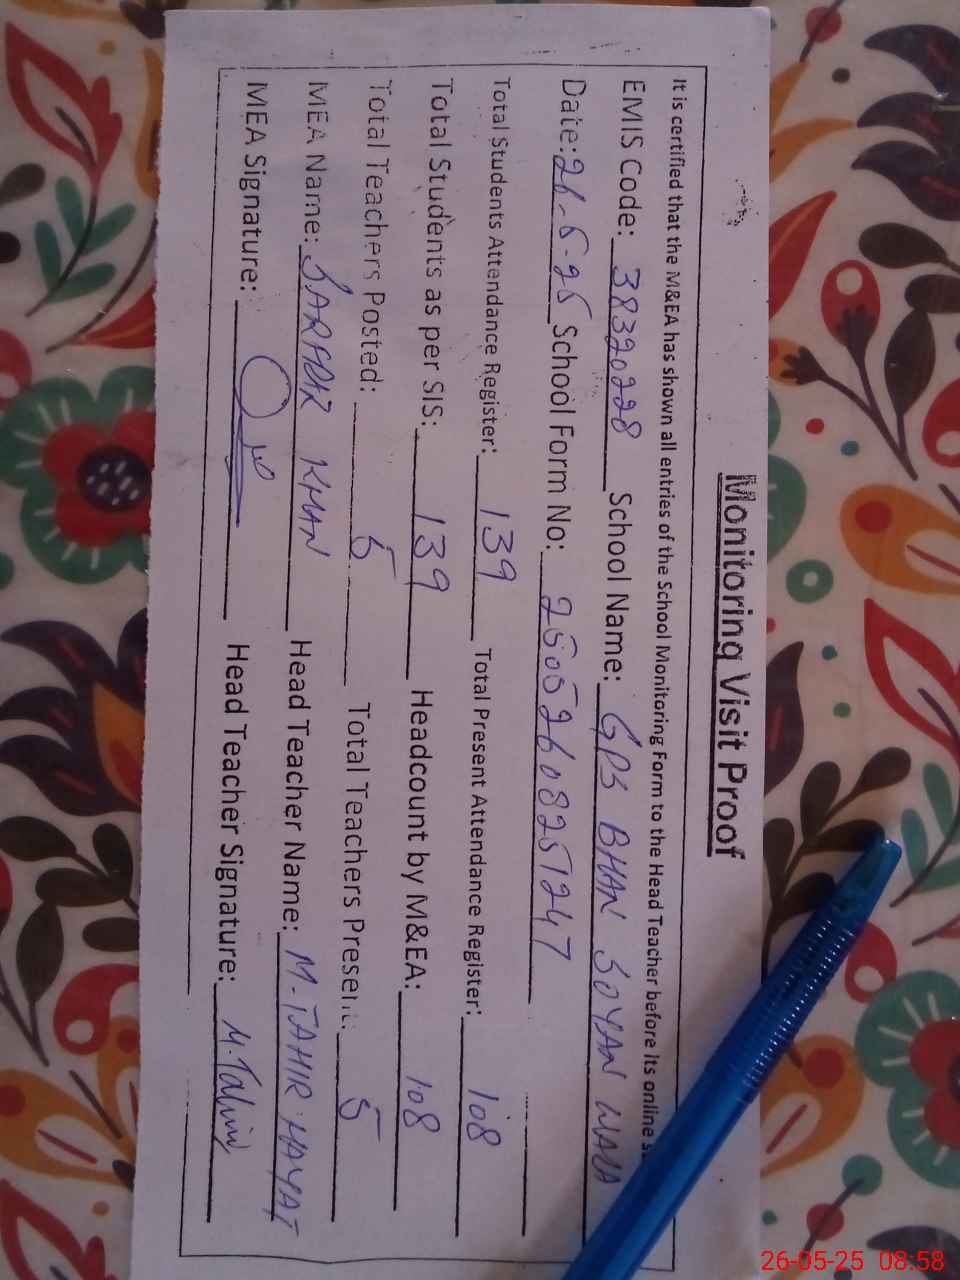 Monitoring Visit Proof
It is certified that the M&EA has shown all entries of the School Monitoring Form to the Head Teacher before its online
EMIS Code: 38320228 School Name: GPS BHAN SOYAN WALA
Date: 26-5-25 School Form No: 25052608251247
Total Students Attendance Register: 139 Total Present Attendance Register: 108
Total Students as per SIS: 139 Headcount by M&EA: 108
Total Teachers Posted: 5 Total Teachers Present: 5
MEA Name: SARDAR KHAN Head Teacher Name: M-TAHIR HAYAT
MEA Signature: Head Teacher Signature: M.Tahir
26-05-25 08:58